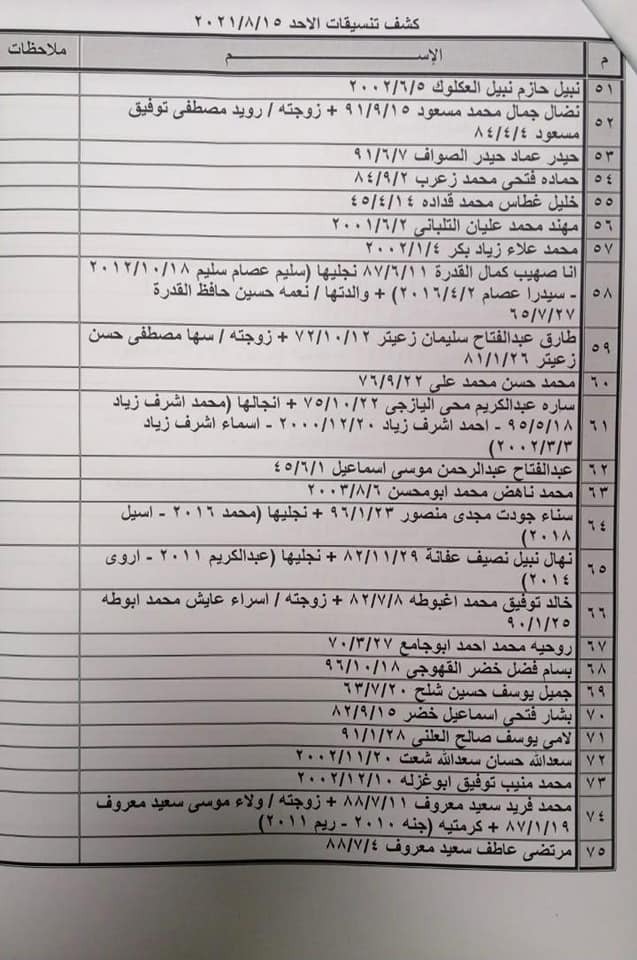 كشف تنسيقات الاحد ٢٠٢١/٨/١٥
م الإســـم ملاحظات
٥١ نبيل حازم نبيل العكلوك ٢٠٠٢/٦/٥
٥٢ نضال جمال محمد مسعود ٩١/٩/١٥ + زوجته / رويد مصطفى توفيق
مسعود ٨٤/٤/٤
٥٣ حيدر عماد حيدر الصواف ٩١/٦/٧
٥٤ حماده فتحى محمد زعرب ٨٤/٩/٢
٥٥ خليل غطاس محمد قداده ٤٥/٤/١٤
٥٦ مهند محمد عليان التلبانى ٢٠٠١/٦/٢
٥٧ محمد علاء زياد بكر ٢٠٠٢/١/٤
٥٨ انا صهيب كمال القدرة ٨٧/٦/١١ نجليها (سليم عصام سليم ٢٠١٢/١٠/١٨
- سيدرا عصام ٢٠١٦/٤/٢) + والدتها / نعمه حسين حافظ القدرة
٦٥/٧/٢٧
٥٩ طارق عبدالفتاح سليمان زعيتر ٧٢/١٠/١٢ + زوجته / سها مصطفى حسن
زعيتر ٨١/١/٢٦
٦٠ محمد حسن محمد على ٧٦/٩/٢٢
٦١ ساره عبدالكريم محى اليازجى ٧٥/١٠/٢٢ + انجالها (محمد اشرف زياد
٩٥/٥/١٨ - احمد اشرف زياد ٢٠٠٠/١٢/٢٠ - اسماء اشرف زياد
٢٠٠٢/٣/٣)
٦٢ عبدالفتاح عبدالرحمن موسى اسماعيل ٤٥/٦/١
٦٣ محمد ناهض محمد ابومحسن ٢٠٠٣/٨/٦
٦٤ سناء جودت مجدى منصور ٩٦/١/٢٣ + نجليها (محمد ٢٠١٦ - اسيل
٢٠١٨)
٦٥ نهال نبيل نصيف عفانة ٨٢/١١/٢٩ + نجليها (عبدالكريم ٢٠١١ - اروى
٢٠١٤)
٦٦ خالد توفيق محمد اغبوطه ٨٢/٧/٨ + زوجته / اسراء عايش محمد ابوطه
٩٠/١/٢٥
٦٧ روحيه محمد احمد ابوجامع ٧٠/٣/٢٧
٦٨ بسام فضل خضر القهوجى ٩٦/١٠/١٨
٦٩ جميل يوسف حسين شلح ٦٣/٧/٢٠
٧٠ بشار فتحى اسماعيل خضر ٨٢/٩/١٥
٧١ لامى يوسف صالح العلنى ٩١/١/٢٨
٧٢ سعدالله حسان سعدالله شعت ٢٠٠٢/١١/٢٠
٧٣ محمد منيب توفيق ابوغزله ٢٠٠٢/١٢/١٠
٧٤ محمد فريد سعيد معروف ٨٨/٧/١١ + زوجته / ولاء موسى سعيد معروف
٨٧/١/١٩ + كرمتيه (جنه ٢٠١٠ - ريم ٢٠١١)
٧٥ مرتضى عاطف سعيد معروف ٨٨/٧/٤